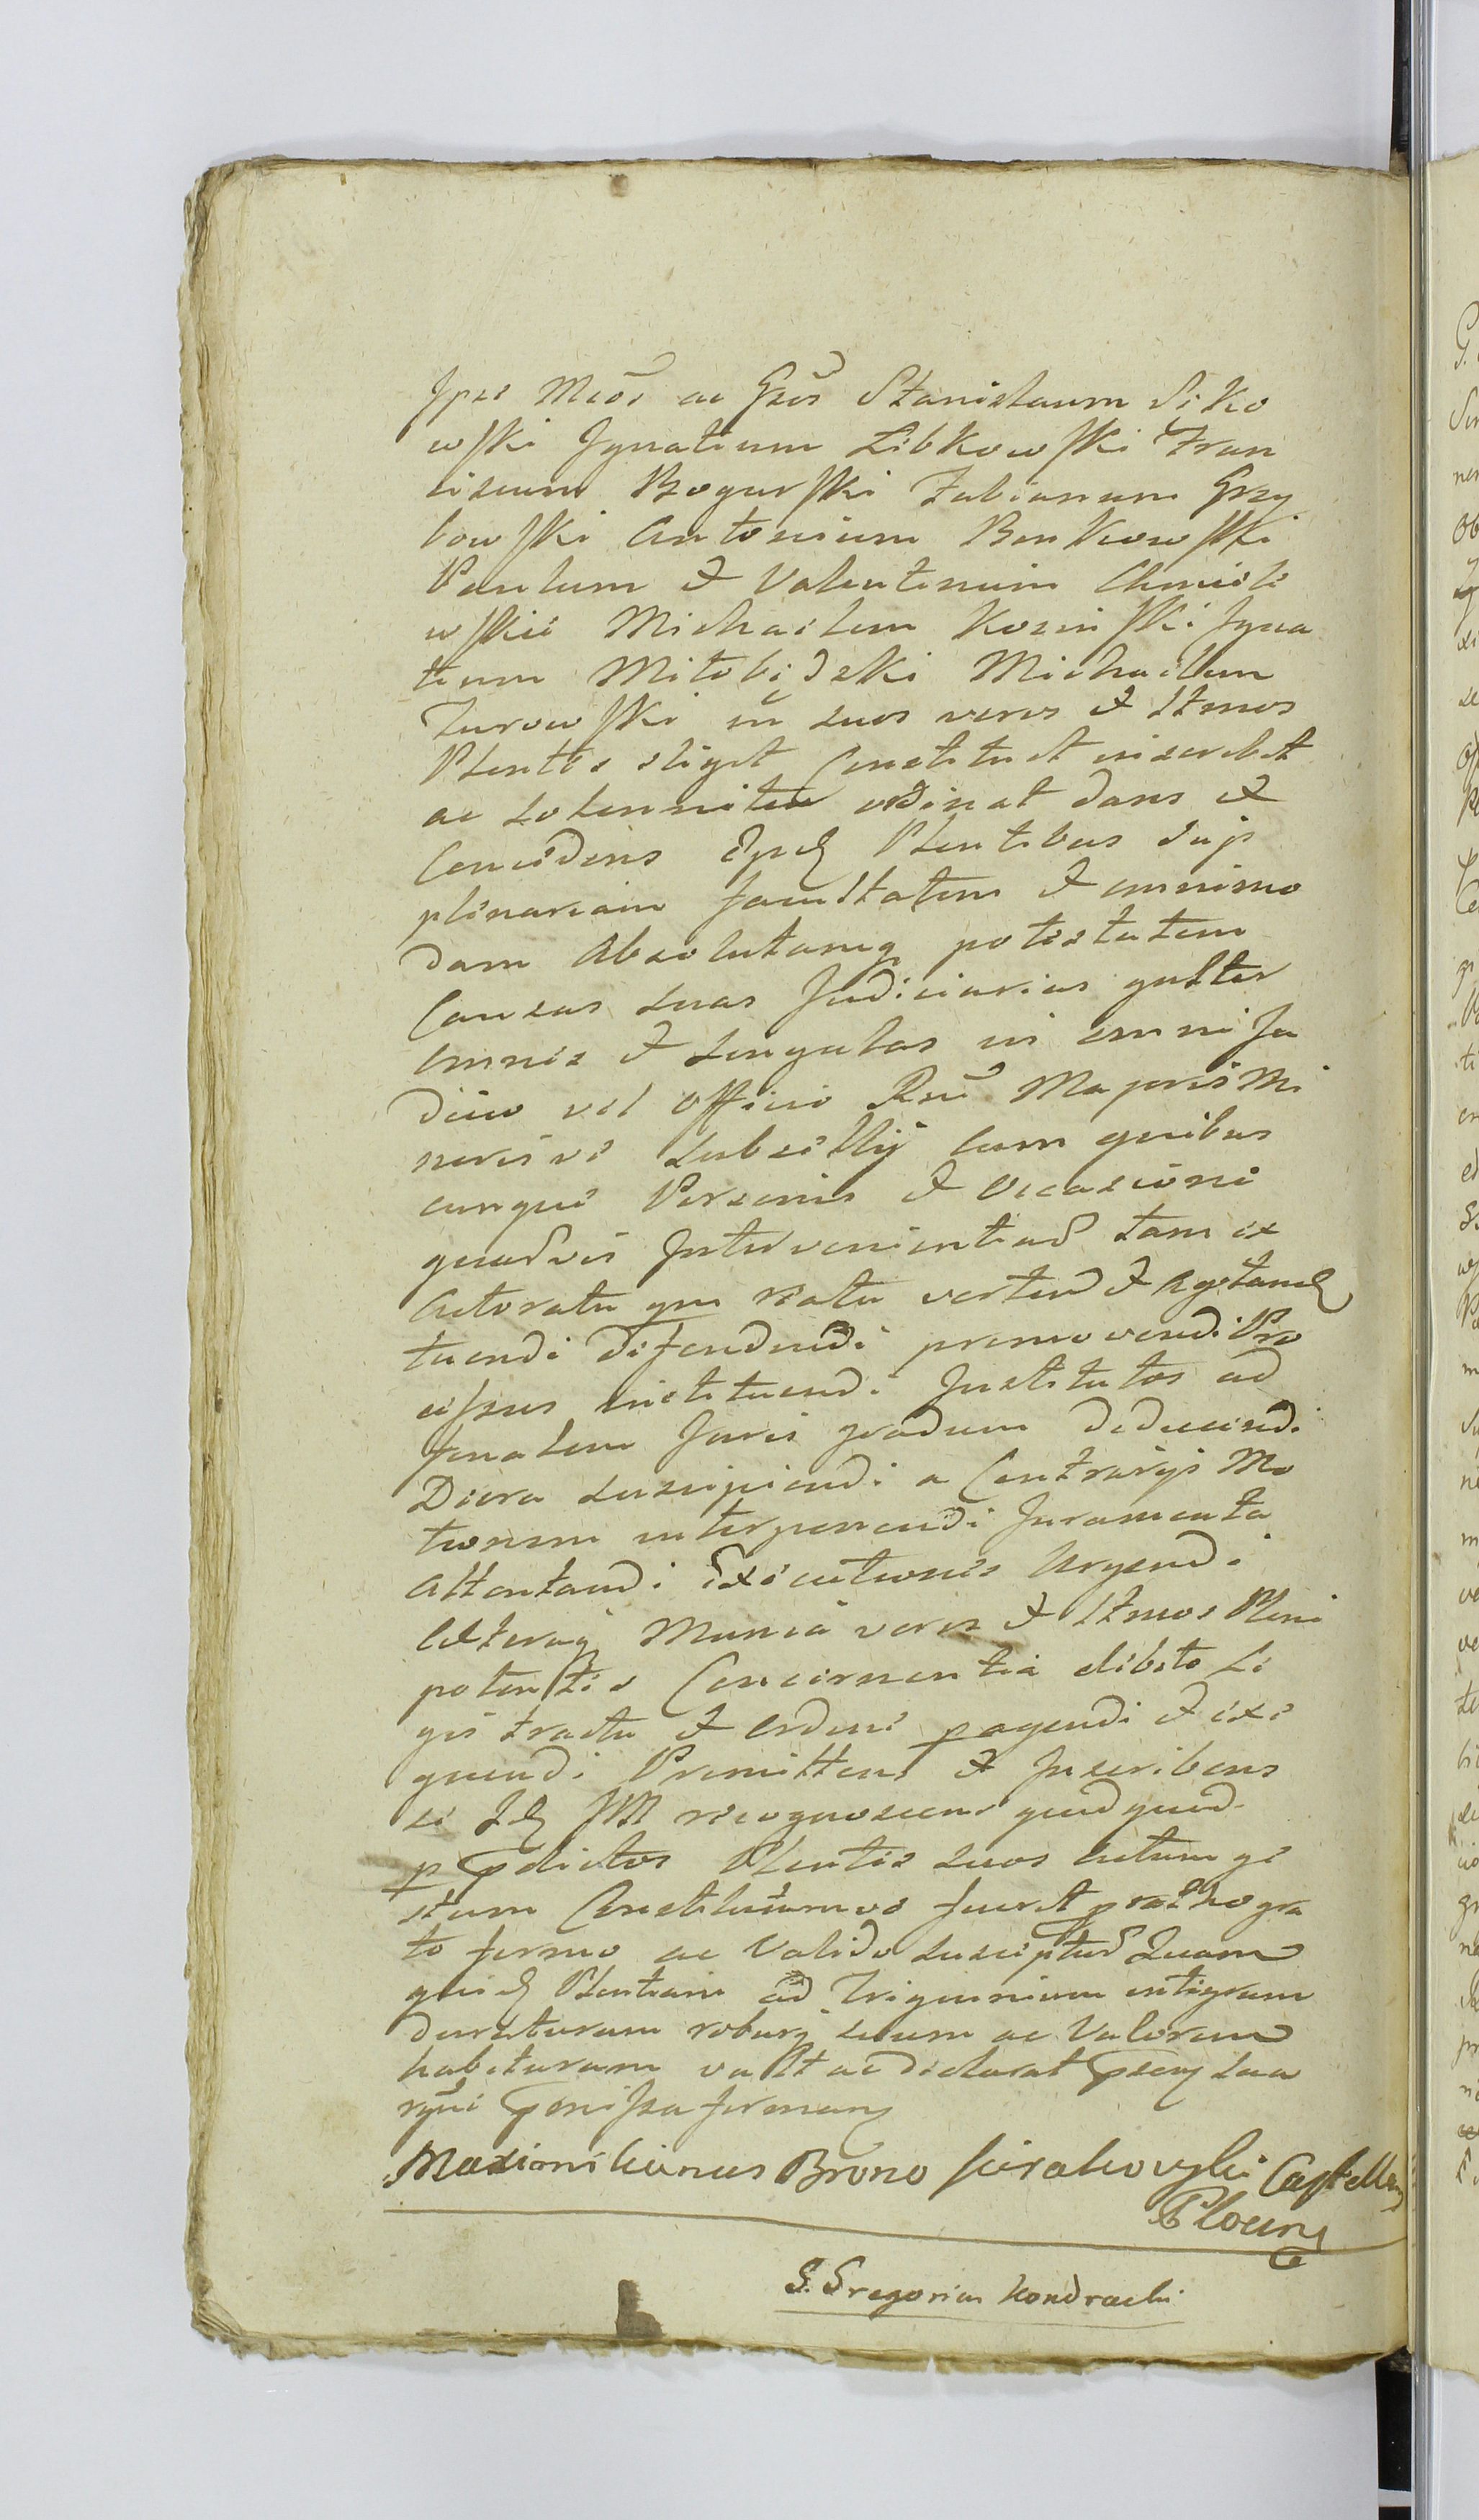 Ipse Mcos ac Gsos Stanislaum Siko
wski Ignatium Libkowski Fran
ciscum Bogurski Fabianum Grzy
bowski Antonium Benkowski
Paulum et Valentinum Chmiele
wskie Michaelem Kozinski Igna
tium Miłobędzki Michaelem
Zurowski in suos veros et Ltmos
Plentes eliget Constituit inscribit
ac solenniter ordinat dans et
Concedens Plentibus suis
plenariam facultatem et omnimo
dam Absolutamq potestatem
Causas suas Judiciarias gnlter
omnes et singulas in omni Ju
dicio vel Officio Rni Majoris Mi
noris ve Subsellij cum quibus
cunque Personis et Occasione
quavis Intervenientiad tam ex
Actoratu qm reatu vertend et Agitand
tuendi defendendi promovendi Pro
cessus instituendi Institutos ad
finalem Juris gradum deducendi
Decra suscipiendi a Contrarijs Mo
tionem interponendi Juramenta
Attentandi Executiones Urgendi
Cæteraq Munia veros et Ltmos Pleni
potentes Concernentia debito Le
gis tractu et ordine pagendi et exe
quendi Promittens et Inscribens
se recognoscens quidquid
p pdictos Plentes suos actum ge
stum Constitutumve fuerit grato
to firmo ac Valido suscipturd Quam
quid Plentiam ad Triennium integrum
duraturam robury suum ac Valorem
habituram vult ac declarat
firmans
Maximilianus Brono Sierakowski Castellan
Plocens
S. Gregorius Kondracki